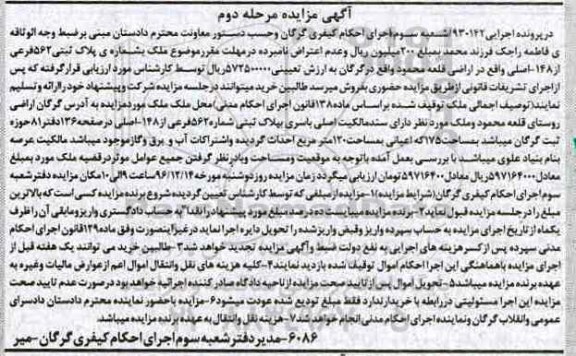 آگهی مزایده مرحله دوم
در پرونده اجرایی ۹۳۰۱۲۲/شعبه سوم اجرای احکام کیفری گرگان وحسب دستور معاونت محترم دادستان مبنی بر ضبط وجه الوثاقه
ی فاطمه راجک فرزند محمد بمبلغ ۲۰۰میلیون ریال وعدم اعتراض نامبرده درمهلت مقررموضوع ملک بشماره ی پلاک ثبتی ۵۶۲فرعی
از ۱۴۸-اصلی واقع در اراضی قلعه محمود واقع درگرگان به ارزش تعیینی ۵۷۲۵۰۰۰۰۰ریال توسط کارشناس مورد ارزیابی قرارگرفته که پس
از اجرای تشریفات قانونی ازطریق مزایده حضوری بفروش میرسد طالبین خرید میتوانند درجلسه مزایده شرکت وپیشنهاد خود را ارائه و تسلیم
نمایند(توصیف اجمالی ملک توقیف شده براساس ماده۱۳۸قانون اجرای احکام مدنی)محل ملک ملک موردمزایده به آدرس گرگان اراضی
روستای قلعه محمود وملک مورد نظر دارای سندمالکیت اصلی باسری بپلاک ثبتی شماره۵۶۲فرعی از ۱۴۸-اصلی درصفحه۱۳۶دفتر۸۱حوزه
ثبت گرگان میباشد بمساحت۱۷۵که اعیانی بمساحت ۱۲۰متر مربع احداث گردیده واشتراکات آب و برق وگازموجود میباشد مالکیت عرصه
بنام بنیاد علوی میباشد با بررسی بعمل آمده باتوجه به موقعیت ومساحت وبادرنظر گرفتن جمیع عوامل موثردرقضیه ملک مورد بمبلغ
۵۹۷۱۶۴۰۰۰ریال معادل ۵۹۷۱۶۴۰۰تومان ارزیابی میگردد زمان مزایده روزدوشنبه مورخه ۹۶/۱۲/۱۴ساعت ۹الی۱۰مکان مزایده دفترشعبه
سوم اجرای احکام کیفری گرگان(شرایط مزایده)۱-مزایده ازمبلغی که توسط کارشناس تعیین گردیده شروع برنده مزایده کسی است که بالاترین
مبلغ را درجلسه مزایده قبول نماید۲-برنده مزایده میبایست ده درصد مبلغ مورد پیشنهاد را نقدا به حساب دادگستری واریز ومابقی آن را ظرف
یکماه از تاریخ اجرای مزایده به حساب سپرده واریز وقبض واریز شده را تحویل دایره اجرا نماید درغیراینصورت وفق ماده۱۲۹قانون اجرای احکام
مدنی سپرده پس ازکسر هزینه های اجرایی به نفع دولت ضبط وآگهی مزایده تجدید خواهد شد۳-طالبین خرید می توانند یک هفته قبل از
اجرای مزایده باهماهنگی این اجرا احکام اموال توقیف شده بازدید نمایند۴-کلیه هزینه های نقل وانتقال اموال اعم ازعوارض مالیات وغیره به
عهده برنده مزایده میباشد۵-تحویل اموال پس ازتایید صحت مزایده ازناحیه دادگاه صادر کننده اجرائیه خواهدبود درصورت عدم تایید صحت
مزایده این اجرا مسئولیتی دررابطه با خریدارندارد فقط مبلغ تودیع شده عودت میشود۶-مزایده باحضور نماینده محترم دادستان دادسرای
عمومی وانقلاب گرگان ونماینده اجرای احکام مدنی انجام خواهد شد۷-هزینه نقل وانتقال به عهده برنده مزایده میباشد.
۶۰۸۶-مدیر دفتر شعبه سوم اجرای احکام کیفری گرگان-میر